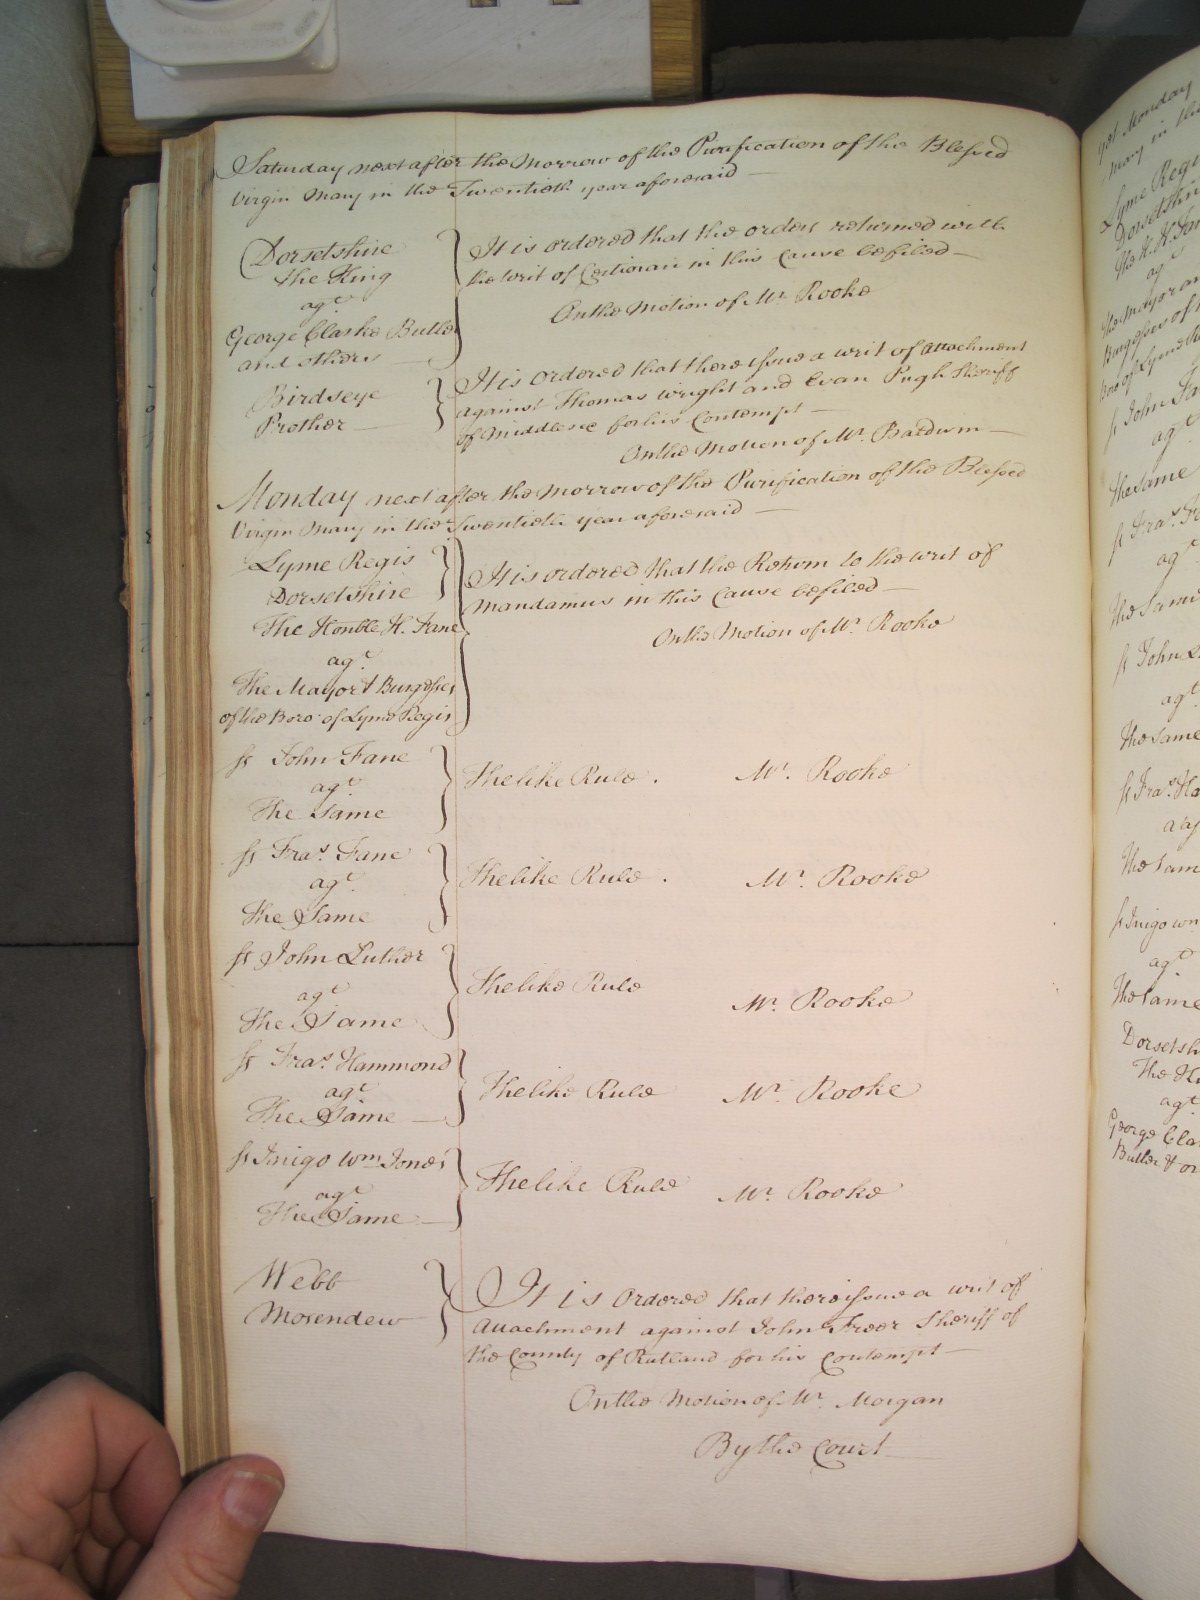 Saturday next after the Morrow of the Purification of the Blessed
Virgin Mary in the Twentieth year aforesaid
Dorsetshire
The King
agt
George Clarke Butler
and others
It is ordered that the orders returned with
the writ of Certiorari in this Cause be filed
On the Motion of Mr. Rooke
Birdseye
Prother
It is ordered that there issue a writ of attachment
against Thomas Wright and Evan Pugh Sheriff
of Middlesex for his Contempt
On the Motion of Mr. Baldwin
Monday next after the Morrow of the Purification of the Blessed
Virgin Mary in the Twentieth year aforesaid
Lyme Regis
Dorsetshire
The Honble H. Fane
agt
The Mayor & Burgesses
of the Boro' of Lyme Regis
It is ordered that the Return to the writ of
Mandamus in this Cause be filed
On the Motion of Mr. Rooke
ss John Fane
agt
The Same
The like Rule. Mr. Rooke
ss Fras. Fane
agt
The Same
The like Rule. Mr. Rooke
ss John Luther
agt
The Same
The like Rule
Mr. Rooke
ss Fras. Hammond
agt
The Same
The like Rule Mr. Rooke
ss Inigo Wm Jones
agt
The Same
The like Rule Mr. Rooke
Webb
Morendew
It is Ordered that there issue a writ of
Attachment against John Freer Sheriff of
the County of Rutland for his Contempt
On the Motion of Mr. Morgan
By the Court
yet Monday
Mary in the
Lyme Regis
Dorsetshire
The H. H. Fane
agt
The Mayor an
Burgesses of
Boro of Lyme R
ss John Fa
agt
The Same
ss Fras. F
agt
The Same
ss John L
agt
The Same
ss Fras. Ha
agt
The Same
ss Inigo Wm
agt
The Same
Dorsetsh
The Ki
agt
George Cla
Butler & o